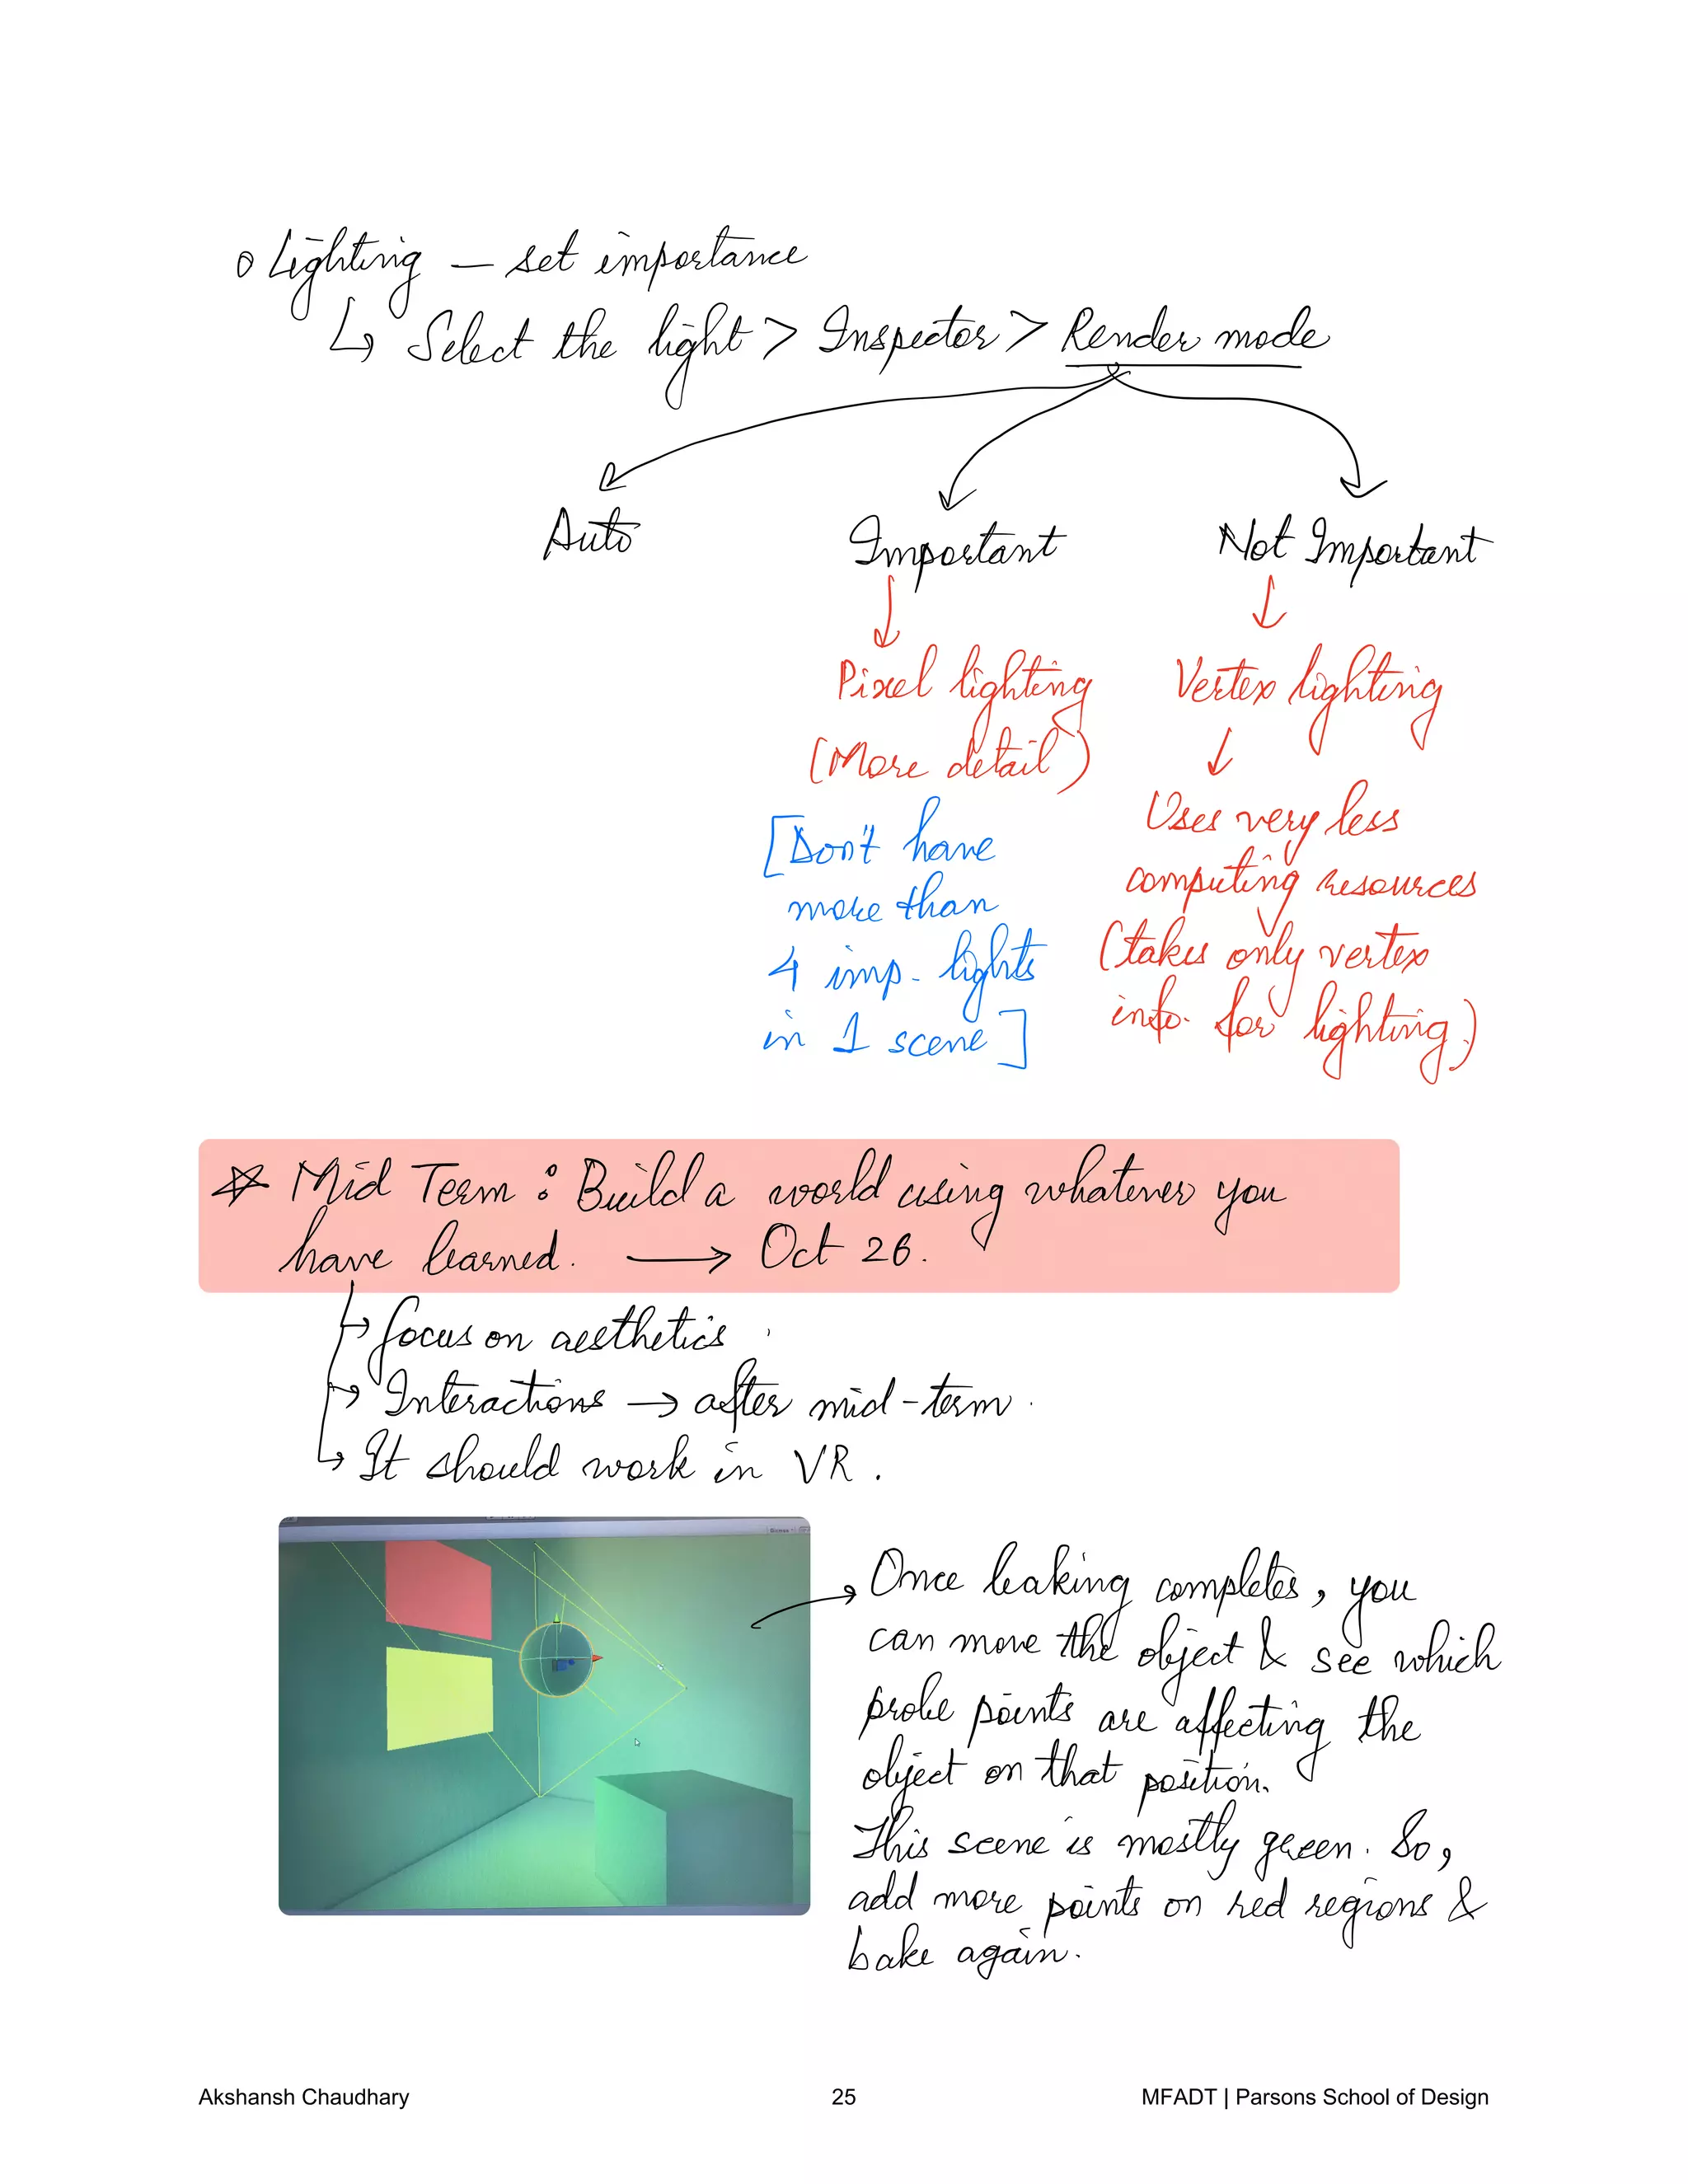 o Lighting – set importance
↳ Select the light > Inspector > Render mode
Auto
Important
Not Important
Pixel lighting
(More detail)
[Don't have
more than
4 imp. lights
in 1 scene]
Vertex lighting
Uses very less
computing resources
(takes only vertex
info. for lighting)
☆ Mid Term : Build a world using whatever you
have learned. → Oct 26.
↳ focus on aesthetics.
↳ Interactions → after mid-term.
↳ It should work in VR.
Once leaking completes, you
can move the object & see which
probe points are affecting the
object on that position.
This scene is mostly green. So,
add more points on red regions &
bake again.
Akshansh Chaudhary
25
MFADT | Parsons School of Design